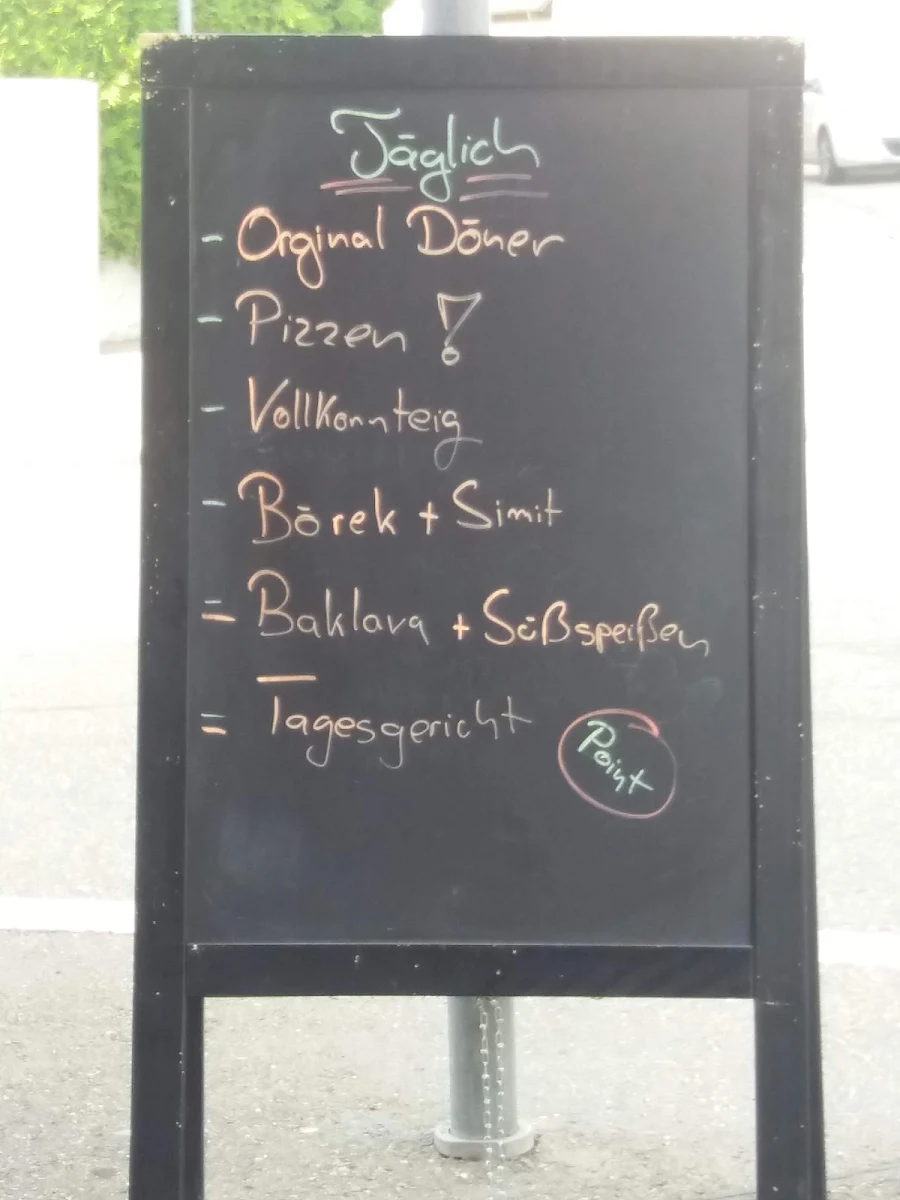 Täglich
- Orginal Döner
- Pizzen !
- Vollkornteig
- Börek + Simit
= Baklava + Süßspeißen
= Tagesgericht
Point